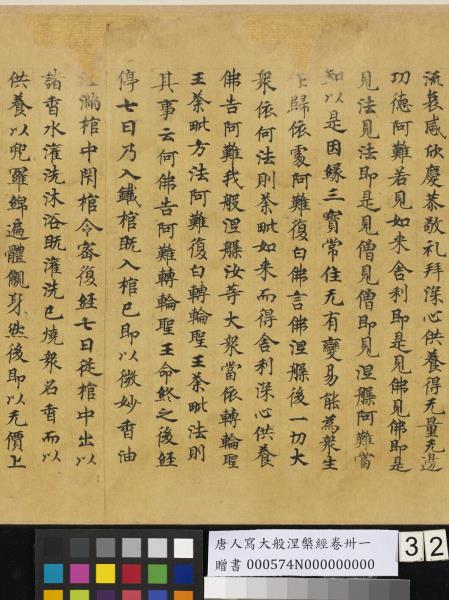 流哀感欣慶恭敬礼拜深心供養得无量无邊
功德阿難若見如来舍利即是見佛見佛即是
見法見法即是見僧見僧即見涅槃阿難當
知以是因緣三寶常住无有變易能為衆生
作歸依處阿難復白佛言佛涅槃後一切大
衆依何法則荼毗如来而得舍利深心供養
佛告阿難我般涅槃汝等大衆當依轉輪聖
王荼毗方法阿難復白轉輪聖王荼毗法則
其事云何佛告阿難轉輪聖王命終之後經
停七日乃入鐵棺既入棺已即以微妙香油
注滿棺中閇棺令密復經七日從棺中出以
諸香水灌洗沐浴既灌洗已燒衆名香而以
供養以兜羅綿遍體儭身然後即以无價上
唐人寫大般涅槃經卷卅一
贈書 000574N000000000
32